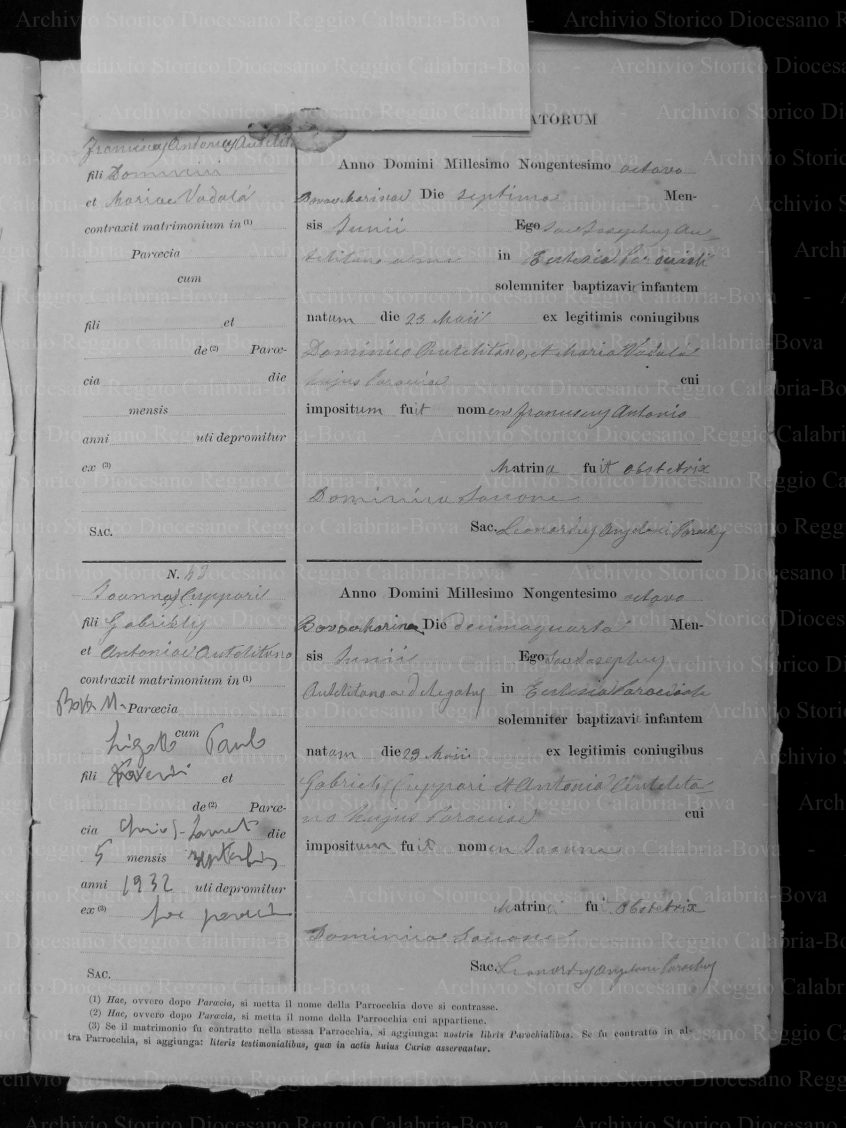 ATORUM
Franciscus Antonius Autelit
fili Dominici
et Mariae Vadalá
contraxit matrimonium in (1)
Parœcia
cum
fili et
de (2) Parœ-
cia die
mensis
anni uti depromitur
ex (3)
SAC.
Anno Domini Millesimo Nongentesimo octavo
Bovae Marinae Die septima Men-
sis Junii Ego Sac Josephus Au-
telitano in Ecclesia Parociali
solemniter baptizavi infantem
natum die 23 Maii ex legitimis coniugibus
Dominico Autelitano, et Maria Vadalá
hujus Parociae cui
impositum fuit nomen Franciscus Antonio
Matrina fuit Obstetrix
Dominica
Sac. Leonardus Angeloni Parochus
N. 43
Joanna Cuppari
fili Gabrielis
et Antoniae Autelitano
contraxit matrimonium in (1)
Bova M. Parœcia
cum Paulo
fili et
de (2) Parœ-
cia die
5 mensis septembris
anni 1932 uti depromitur
ex (3)
SAC.
Anno Domini Millesimo Nongentesimo octavo
Bovae Marinae Die decimaquarta Men-
sis Junii Ego Sac Josephus
Autelitano delegatus in Ecclesia Parociali
solemniter baptizavi infantem
natam die 29 Maii ex legitimis coniugibus
Gabriele Cuppari et Antonia Autelita
no hujus Parociae cui
impositum fuit nomen Joanna
Matrina fuit Obstetrix
Dominica
Sac. Leonardus Angeloni Parochus
(1) Hac, ovvero dopo Parœcia, si metta il nome della Parrocchia dove si contrasse.
(2) Hac, ovvero dopo Parœcia, si metta il nome della Parrocchia cui appartiene.
(3) Se il matrimonio fu contratto nella stessa Parrocchia, si aggiunga: nostris libris Parochialibus. Se fu contratto in al-
tra Parrocchia, si aggiunga: literis testimonialibus, quæ in actis huius Curiæ asservantur.
Archivio Storico Diocesano Reggio Calabria-Bova